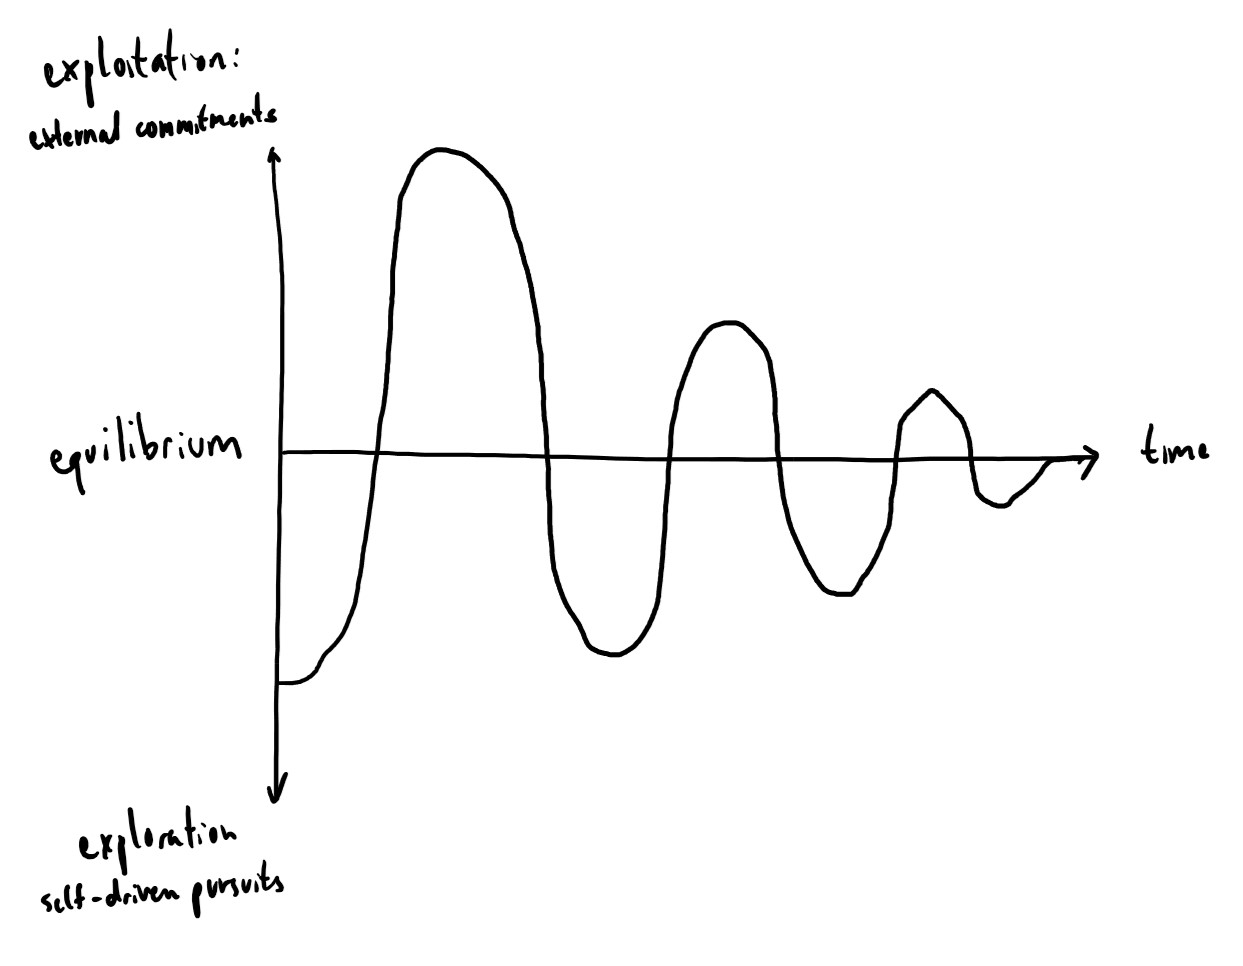 exploitation:
external commitments
equilibrium
time
exploration
self-driven pursuits